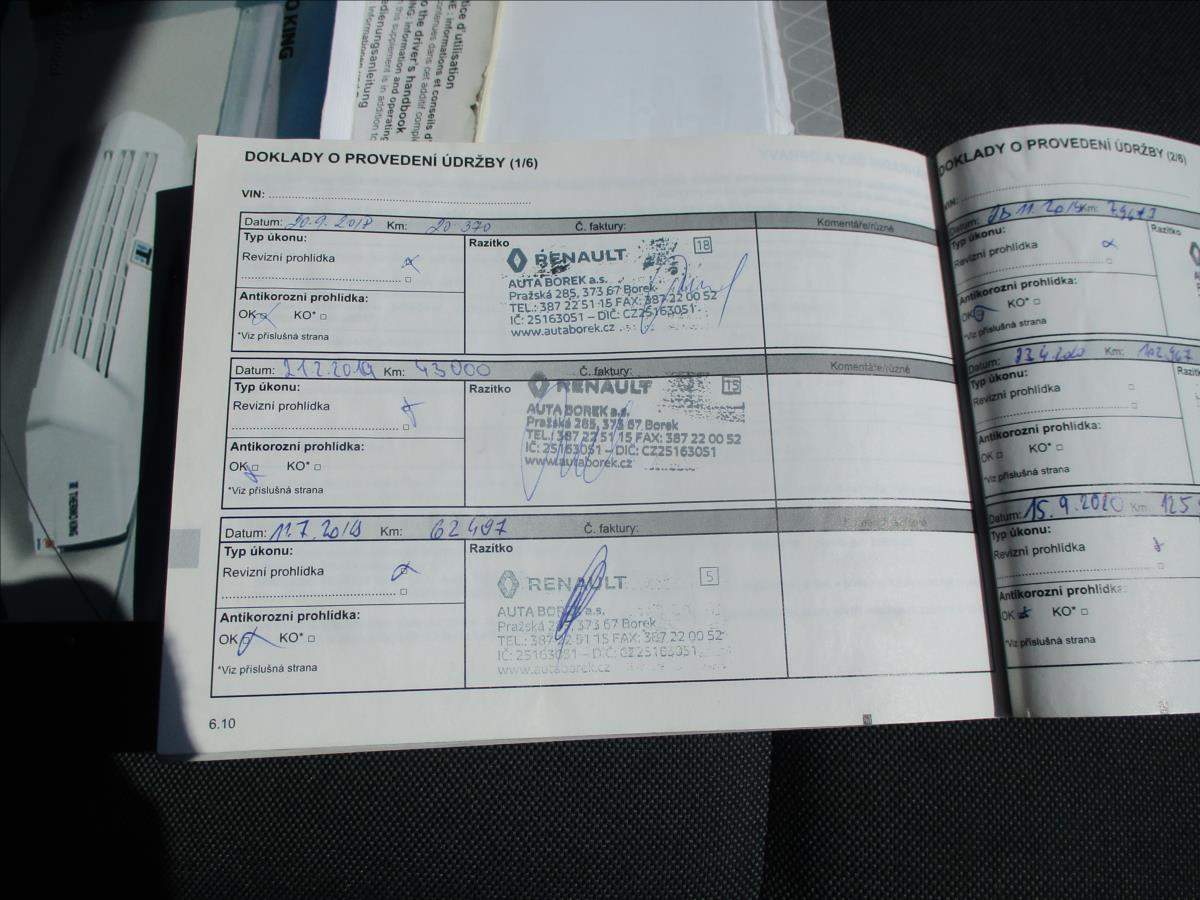 O KING
ice d'utilisation
E : informations et conseils d'
contenues dans cet additif complè
o the driver's handbook
NG: information and operating
this supplement is in addition to
edienungsanleitung
THERMO KING
DOKLADY O PROVEDENÍ ÚDRŽBY (1/6)
VIN:
Datum: 20.9.2018 Km: 20 370 Č. faktury: Komentáře/různé
Typ úkonu:
Revizní prohlídka
Antikorozní prohlídka:
OK KO*
*Viz příslušná strana
Razítko
RENAULT 18
AUTA BOREK a.s.
Pražská 285, 373 67 Borek
TEL.: 387 22 51 15 FAX: 387 22 00 52
IČ: 25163051 - DIČ: CZ25163051
www.autaborek.cz
Datum: 21.2.2019 Km: 43000 Č. faktury: Komentáře/různé
Typ úkonu:
Revizní prohlídka
Antikorozní prohlídka:
OK KO*
*Viz příslušná strana
Razítko
RENAULT 15
AUTA BOREK a.s.
Pražská 285, 373 67 Borek
TEL.: 387 22 51 15 FAX: 387 22 00 52
IČ: 25163051 - DIČ: CZ25163051
www.autaborek.cz
Datum: 11.7.2019 Km: 62497 Č. faktury:
Typ úkonu:
Revizní prohlídka
Antikorozní prohlídka:
OK KO*
*Viz příslušná strana
Razítko
RENAULT 5
AUTA BOREK a.s.
Pražská 285, 373 67 Borek
TEL.: 387 22 51 15 FAX: 387 22 00 52
IČ: 25163051 - DIČ: CZ25163051
www.autaborek.cz
6.10
DOKLADY O PROVEDENÍ ÚDRŽBY (2/6)
VIN:
Datum: 11.2019 Km:
Typ úkonu:
Revizní prohlídka
Antikorozní prohlídka:
OK KO*
*Viz příslušná strana
Razítko
Datum: 23.4.2020 Km: 102.967
Typ úkonu:
Revizní prohlídka
Antikorozní prohlídka:
OK KO*
*Viz příslušná strana
Datum: 15.9.2020 Km: 125
Typ úkonu:
Revizní prohlídka
Antikorozní prohlídka:
OK KO*
*Viz příslušná strana